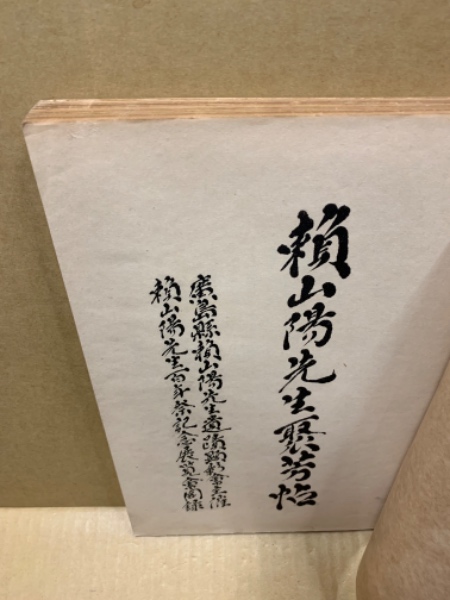 頼山陽先生聚芳帖
廣島縣頼山陽先生遺蹟顕彰會主催
頼山陽先生百年祭記念展覧會図録